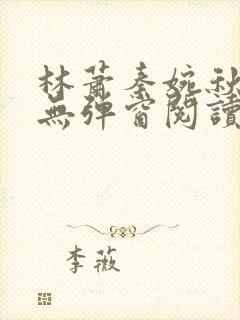 林蕭秦婉秋
無彈窗閱讀
李薇